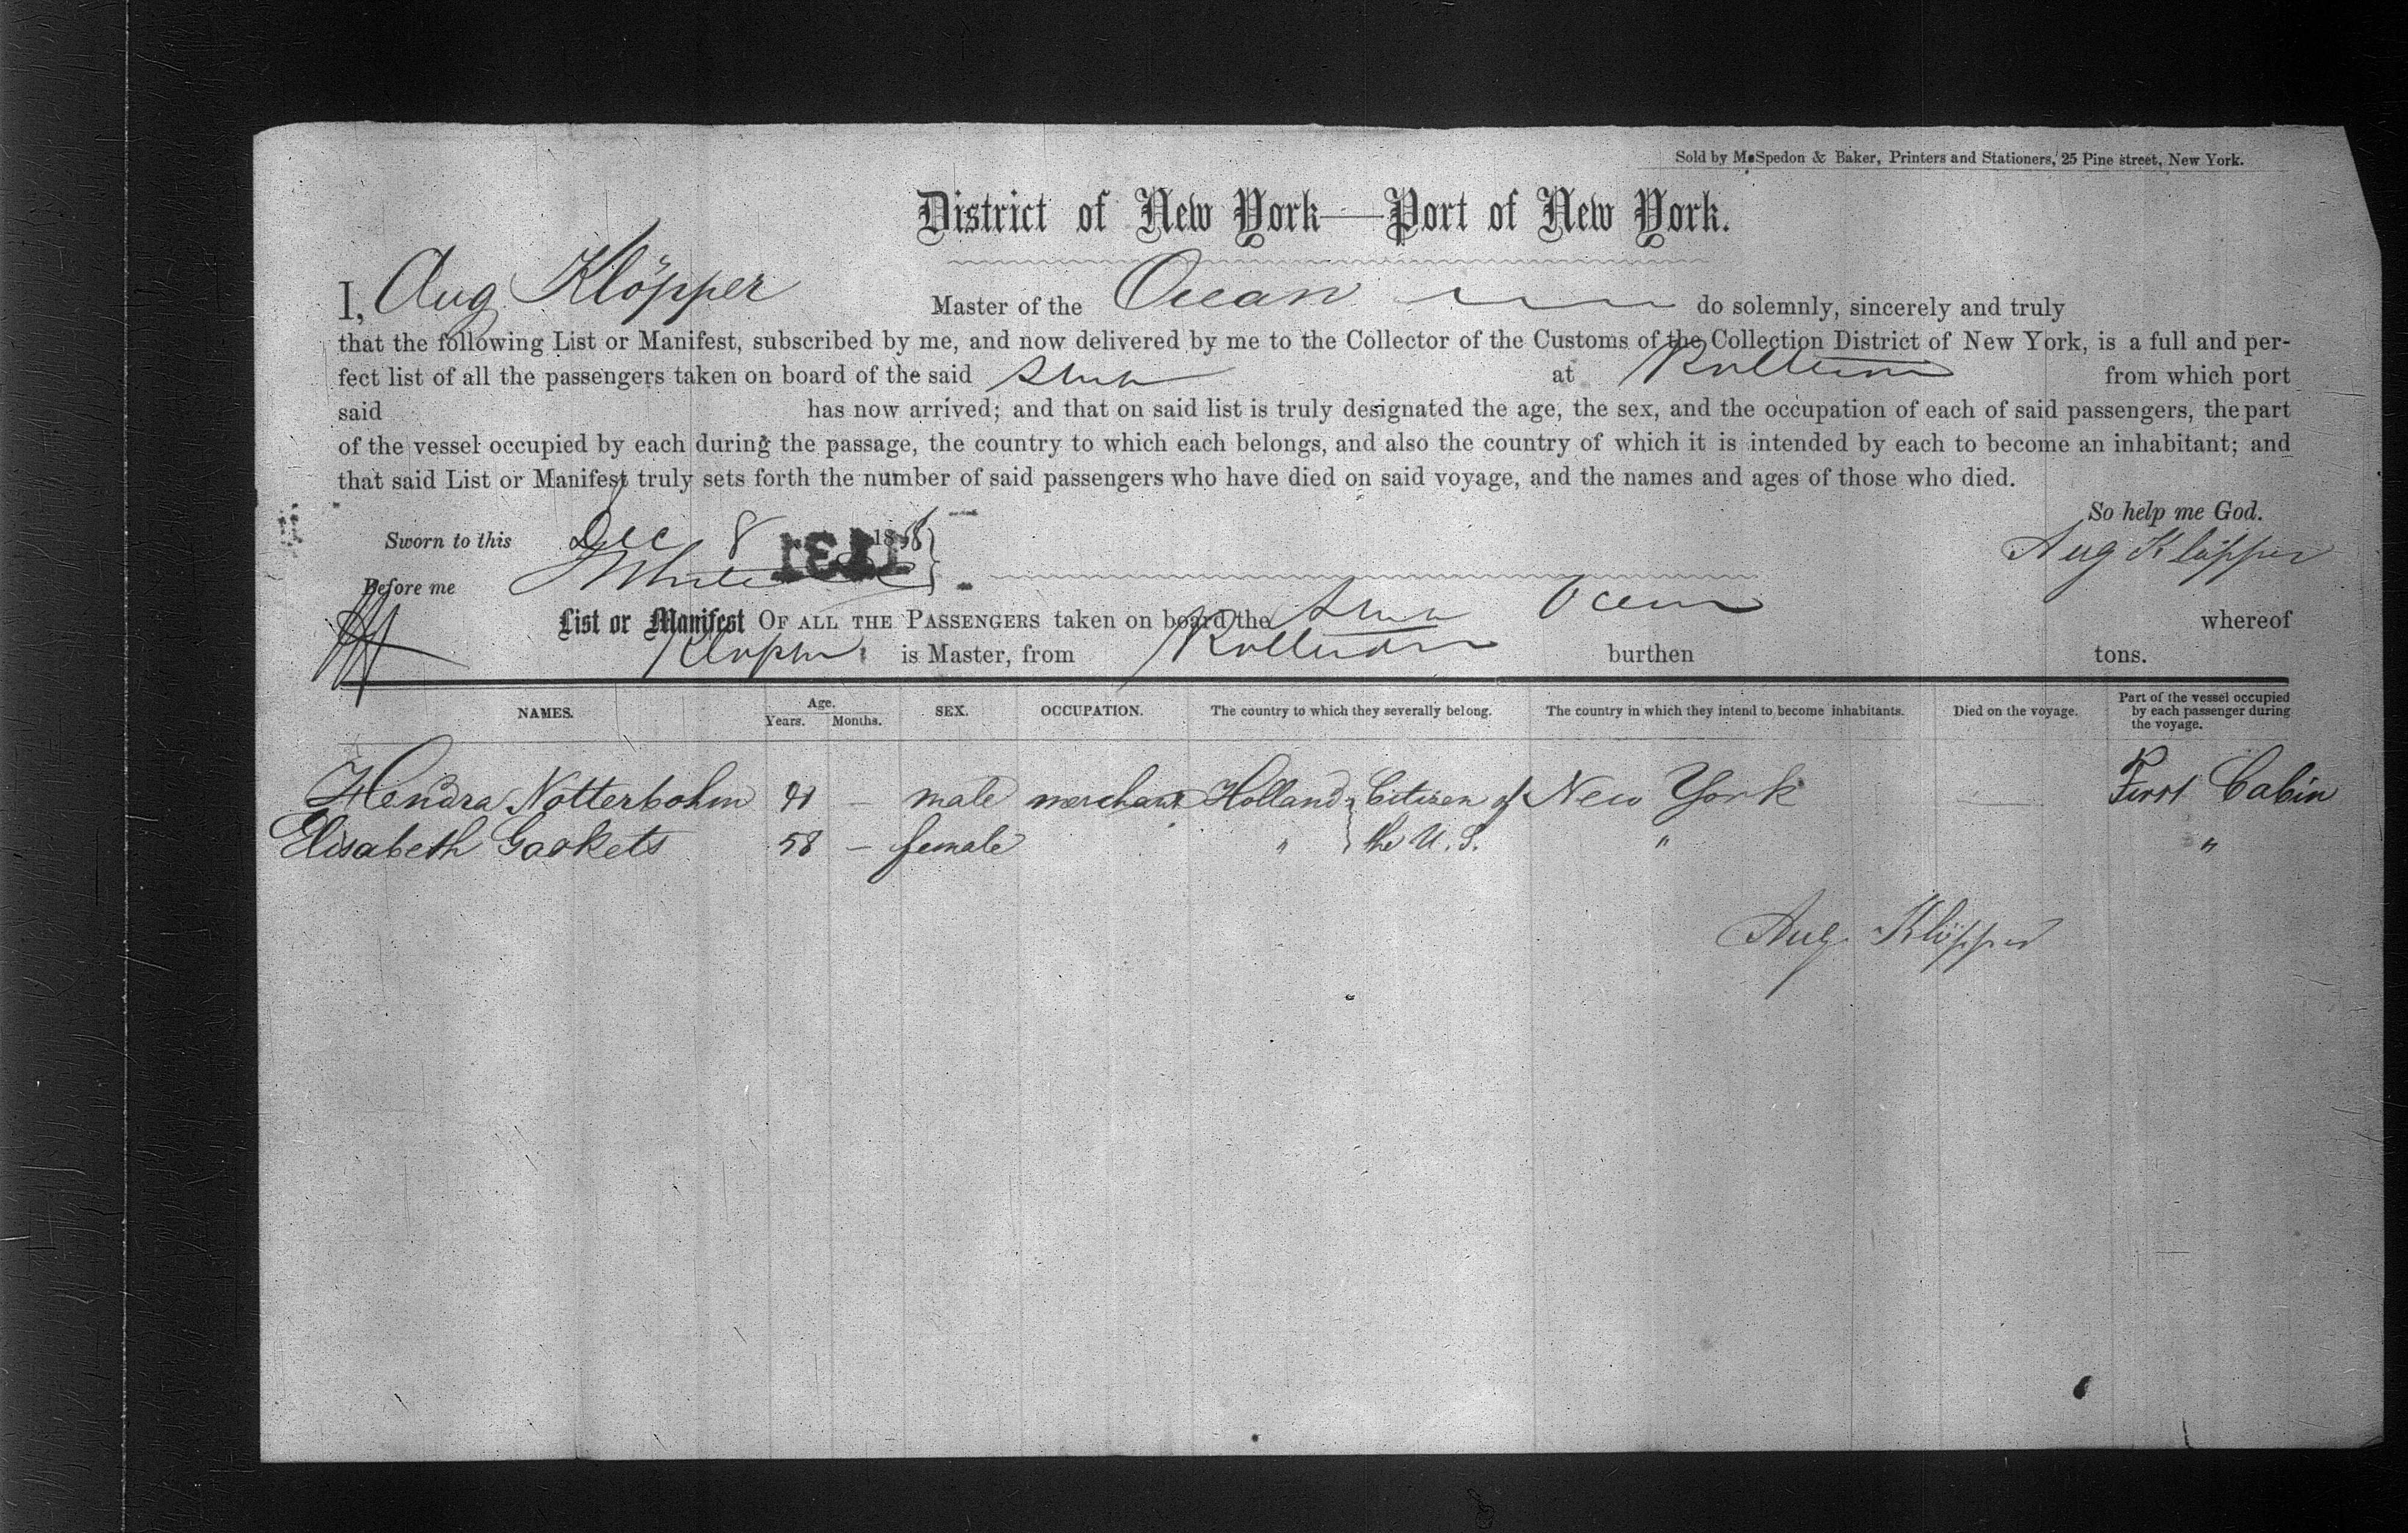 Sold by McSpedon & Baker, Printers and Stationers, 25 Pine street, New York.
District of New York—Port of New York.
I, Aug Klöpper Master of the Ocean do solemnly, sincerely and truly
that the following List or Manifest, subscribed by me, and now delivered by me to the Collector of the Customs of the Collection District of New York, is a full and per-
fect list of all the passengers taken on board of the said at from which port
said has now arrived; and that on said list is truly designated the age, the sex, and the occupation of each of said passengers, the part
of the vessel occupied by each during the passage, the country to which each belongs, and also the country of which it is intended by each to become an inhabitant; and
that said List or Manifest truly sets forth the number of said passengers who have died on said voyage, and the names and ages of those who died.
So help me God.
Sworn to this Dec 8 185 Aug Klöpper
1131
Before me
List or Manifest OF ALL THE PASSENGERS taken on board the Ocean whereof
is Master, from burthen tons.
NAMES. Age. Years. Months. SEX. OCCUPATION. The country to which they severally belong. The country in which they intend to become inhabitants. Died on the voyage. Part of the vessel occupied by each passenger during the voyage.
Hendra Notterbohm 41 – male merchant Holland Citizen of New York First Cabin
Elisabeth Gaskets 58 – female " the U. S. " "
Aug. Klöpper